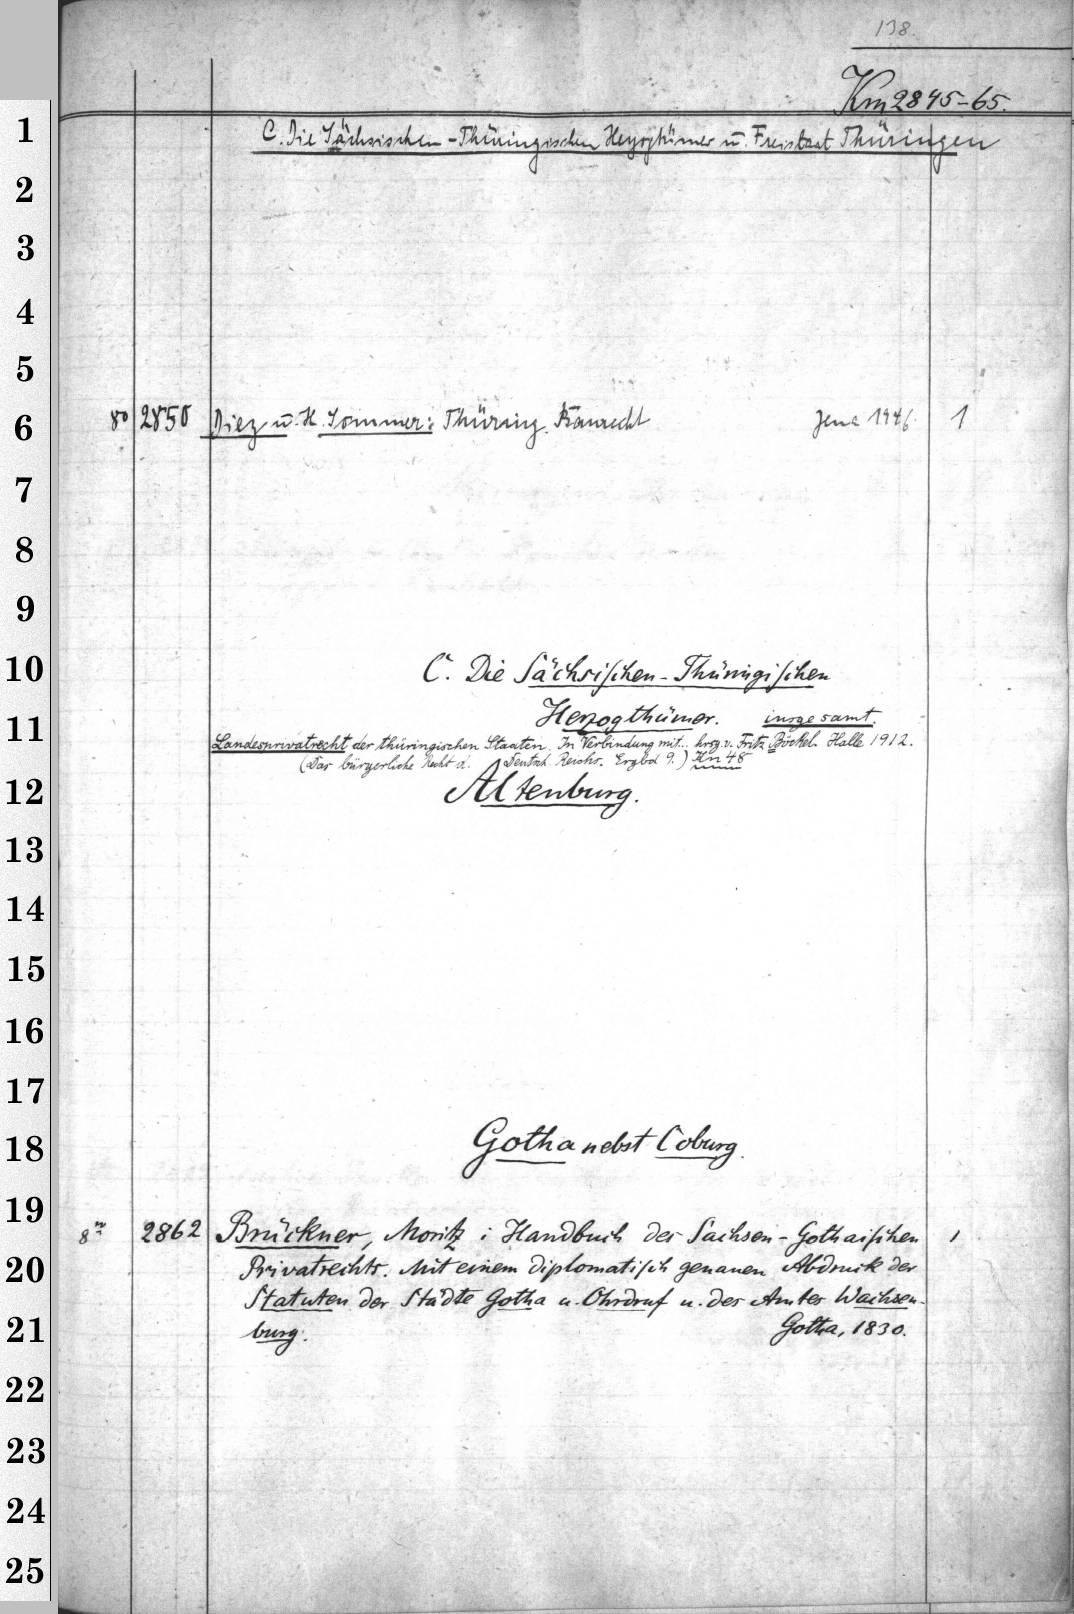 138.
Km 2845-65.
1
C. Die Sächsischen-Thüringischen Herzogtümer u. Freistaat Thüringen
2
3
4
5
6 8o 2850 Diez u. H. Sommer: Thüring. Baurecht Jena 1946. 1
7
8
9
10 C. Die Sächsischen-Thüringischen
11 Herzogthümer. insgesamt.
Landesprivatrecht der thüringischen Staaten. In Verbindung mit... hrsg. v. Fritz Böckel. Halle 1912.
(Das bürgerliche Recht d. Deutsch. Reichs. Ergbd 9.) Kn 48
12 Altenburg.
13
14
15
16
17
18 Gotha nebst Coburg.
19 8vo 2862 Brückner, Moritz: Handbuch des Sachsen-Gothaischen 1
20 Privatrechts. Mit einem diplomatisch genauen Abdruck der
Statuten der Städte Gotha u. Ohrdruf u. des Amtes Wachsen-
21 burg. Gotha, 1830.
22
23
24
25